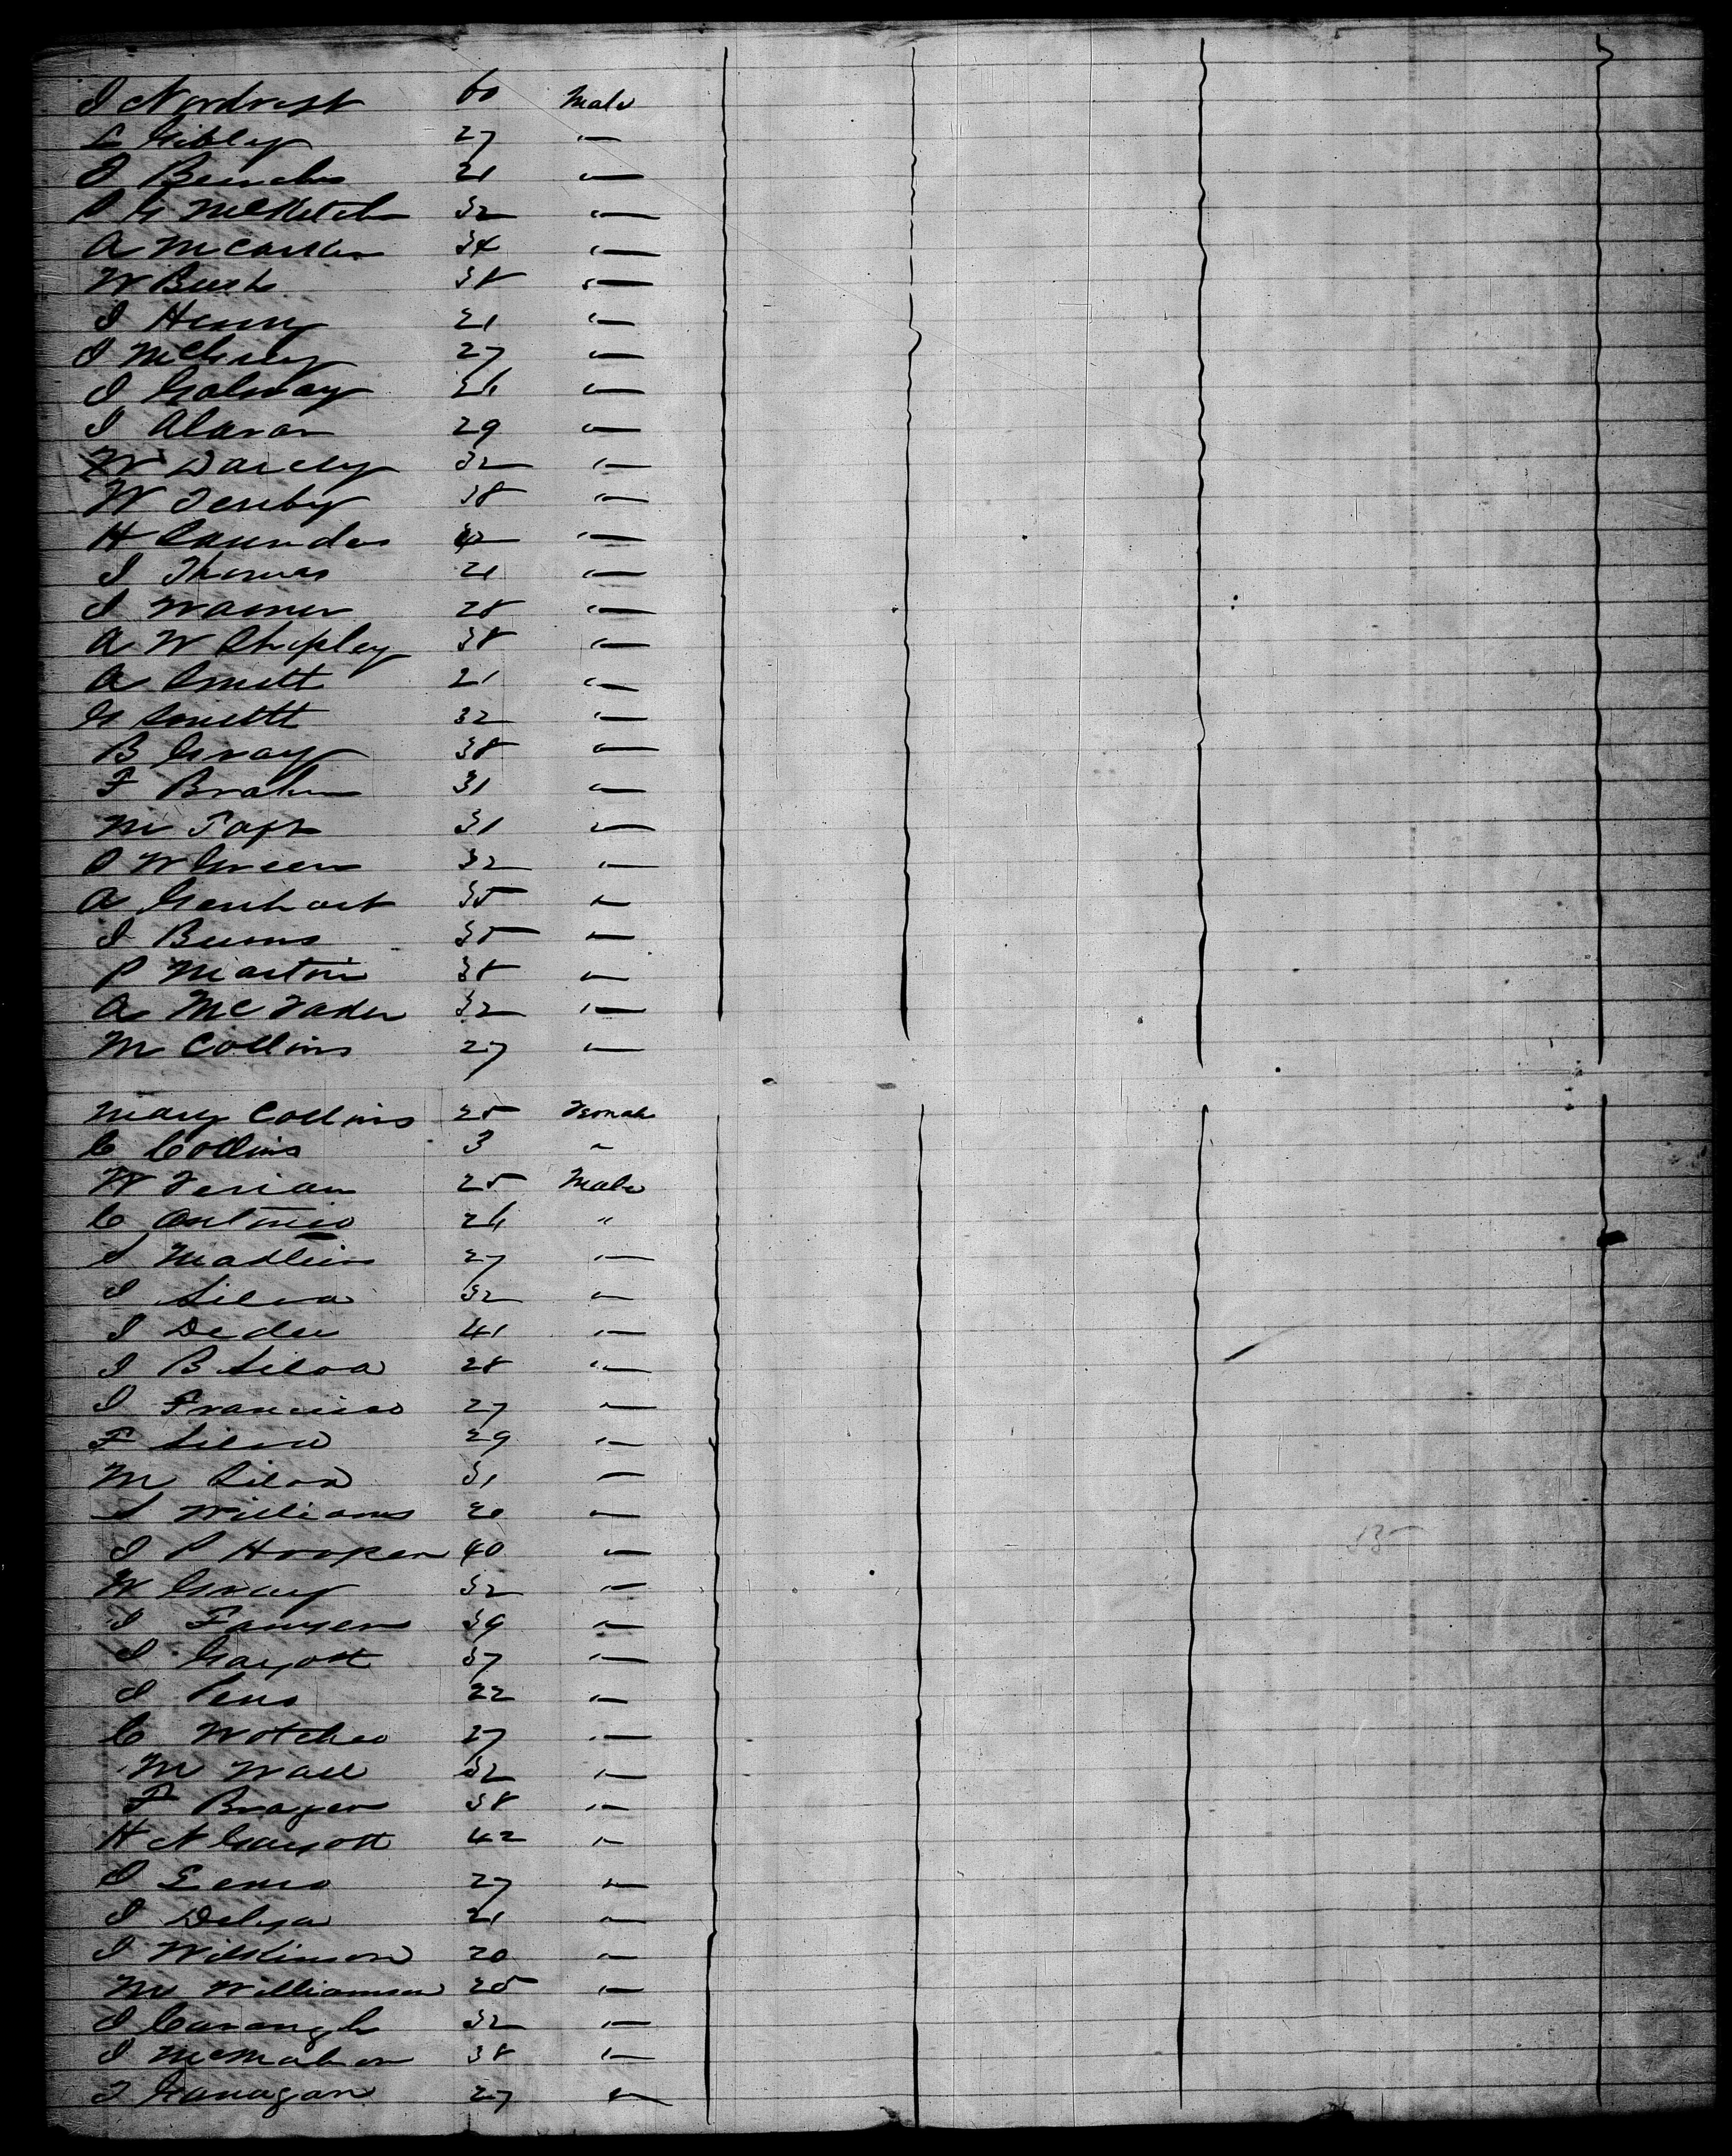 I Nordross 60 Male
L Gibley 27 "—
I Bench 21 "—
P G McKetch 32 "—
A McCarter 34 "—
W Bush 38 "—
I Henry 21 "—
I McGrey 27 "—
I Galway 26 "—
I Alavar 29 "—
W Darcly 32 "—
W Fenby 38 "—
H Saunders 42 "—
I Thomas 21 "—
I Warner 28 "—
A W Shipley 38 "—
A Smett 21 "—
G Smettt 32 "—
B Gray 38 "—
F Brahn 31 "—
M Taft 31 "—
P W Green 32 "—
A Genhart 35 "—
I Burns 35 "—
P Martin 38 "—
A McFaden 32 "—
M Collins 27 "—
Mary Collins 25 Female
C Collins 3 "
W Ferian 25 Male
C Antonio 26 "
S Madlein 27 "—
I Silva 32 "—
I Dedee 41 "—
I B Silva 28 "—
I Francisco 27 "—
F Silva 29 "—
M Silva 31 "—
S Williams 20 "—
I P Hooper 40 "—
W Gray 32 "—
I Fanyen 39 "—
I Gayott 37 "—
I Pens 22 "—
C Wotcheo 27 "—
M Wall 32 "—
F Brayer 38 "—
H N Gayott 42 "—
I Eams 27 "—
I Delya 21 "—
I Wilkinson 20 "—
M Williamson 25 "—
I Cavangh 32 "—
I McMahon 38 "—
I Ganagan 27 "—